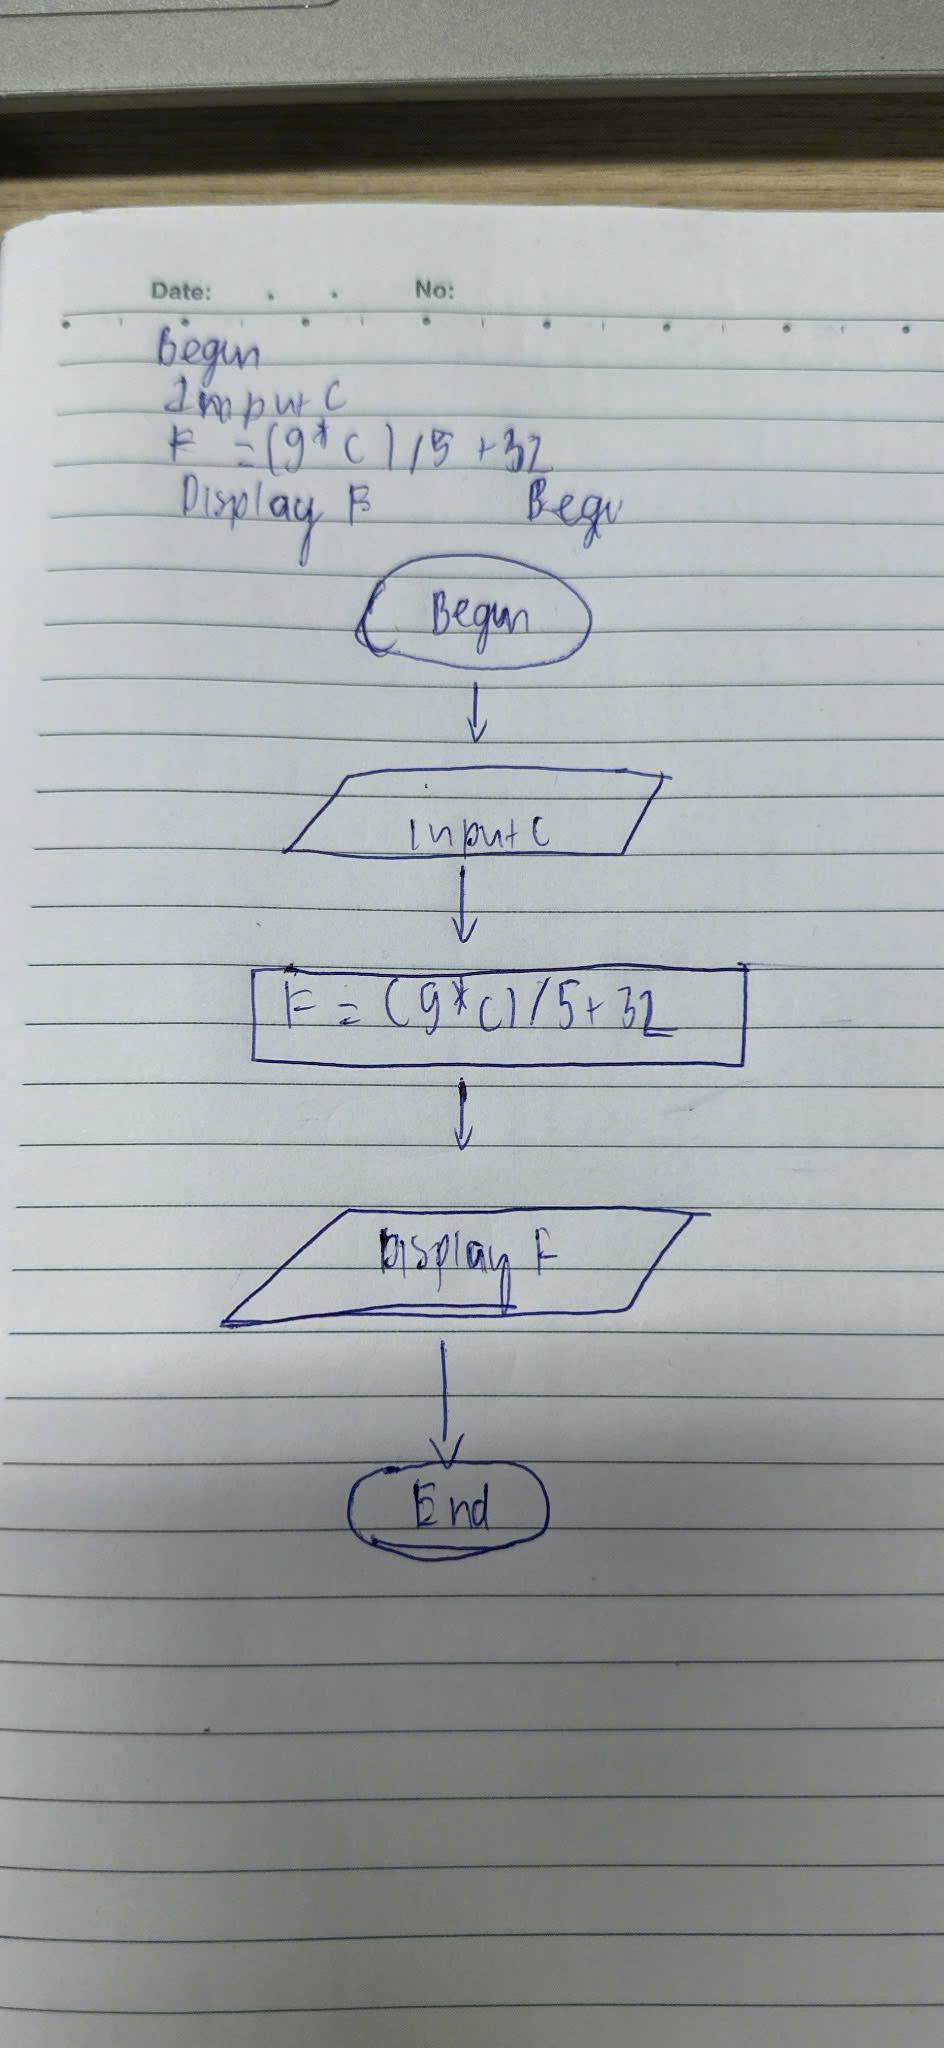 Date: . . No:
Begin
Input C
F = (9*C)/5 +32
Display F Begi
Begin
Input C
F = (9*C)/5+32
Display F
End